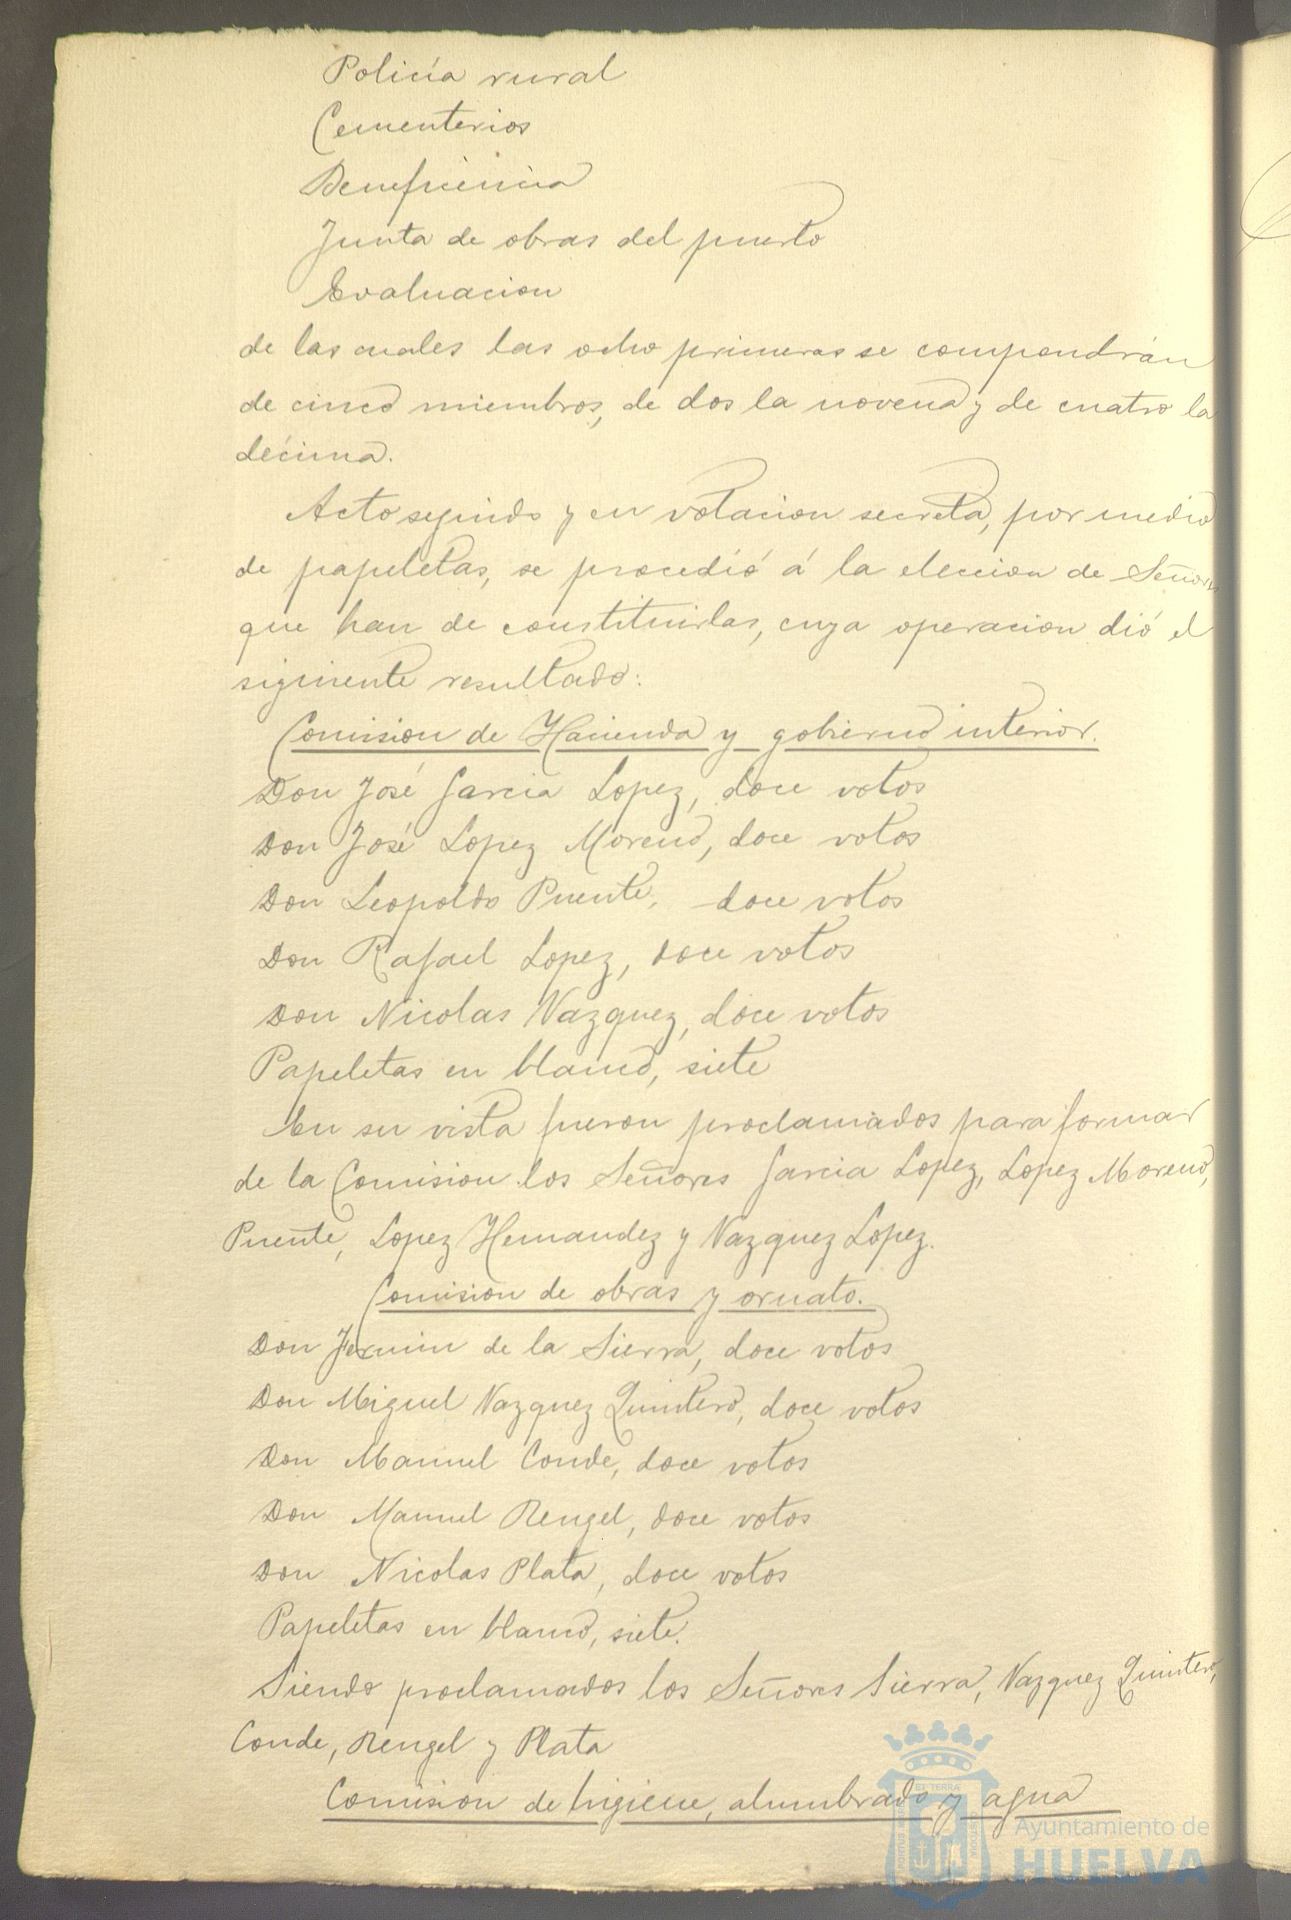 Policía rural
Cementerios
Beneficencia
Junta de obras del puerto
Evaluacion
de las cuales las ocho primeras se compondrán
de cinco miembros, de dos la novena y de cuatro la
décima.
Acto seguido y en votacion secreta, por medio
de papeletas, se procedió á la eleccion de Señores
que han de constituirlas, cuya operacion dió el
siguiente resultado:
Comision de Hacienda y gobierno interior.
Don José Garcia Lopez, doce votos
Don José Lopez Moreno, doce votos
Don Leopoldo Puente, doce votos
Don Rafael Lopez, doce votos
Don Nicolas Vazquez, doce votos
Papeletas en blanco, siete
En su vista fueron proclamados para formar
de la Comision los Señores Garcia Lopez, Lopez Moreno,
Puente, Lopez Hernandez y Vazquez Lopez.
Comision de obras y ornato.
Don Fermin de la Sierra, doce votos
Don Miguel Vazquez Quintero, doce votos
Don Manuel Conde, doce votos
Don Manuel Rengel, doce votos
Don Nicolas Plata, doce votos
Papeletas en blanco, siete.
Siendo proclamados los Señores Sierra, Vazquez Quintero,
Conde, Rengel y Plata
Comision de higiene, alumbrado y agua
Ayuntamiento de
HUELVA